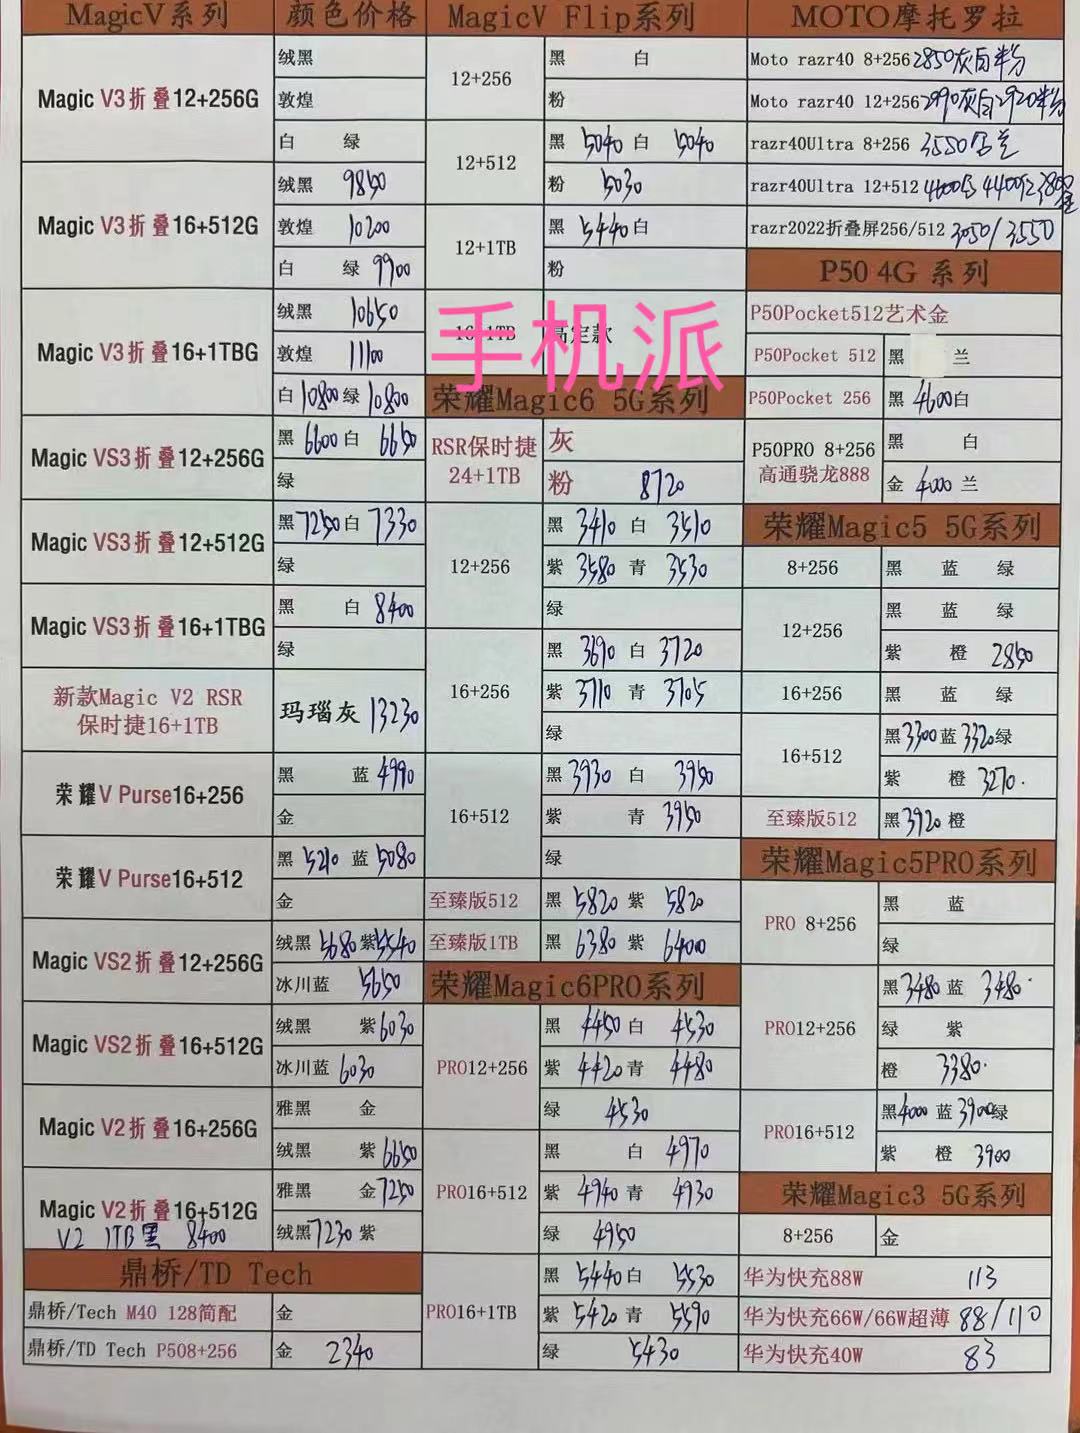 MagicV系列 颜色价格
Magic V3折叠12+256G
绒黑
敦煌
白 绿
Magic V3折叠16+512G
绒黑 9850
敦煌 10200
白 绿 9900
Magic V3折叠16+1TBG
绒黑 10650
敦煌 11100
白 10800 绿 10800
Magic VS3折叠12+256G
黑 6600 白 6650
绿
Magic VS3折叠12+512G
黑 7250 白 7330
绿
Magic VS3折叠16+1TBG
黑 白 8400
绿
新款Magic V2 RSR
保时捷16+1TB
玛瑙灰 13230
荣耀V Purse16+256
黑 蓝 4990
金
荣耀V Purse16+512
黑 5210 蓝 5080
金
Magic VS2折叠12+256G
绒黑 5680 紫 5540
冰川蓝 5650
Magic VS2折叠16+512G
绒黑 紫 6030
冰川蓝 6030
Magic V2折叠16+256G
雅黑 金
绒黑 紫 6650
Magic V2折叠16+512G
雅黑 金 7250
绒黑 7230 紫
V2 1TB黑 8400
鼎桥/TD Tech
鼎桥/Tech M40 128简配 金
鼎桥/TD Tech P508+256 金 2340
MagicV Flip系列
12+256
黑 白
粉
12+512
黑 5040 白 5040
粉 5030
12+1TB
黑 5440 白
粉
16+1TB 高定款
手机派
荣耀Magic6 5G系列
RSR保时捷
24+1TB
灰
粉 8720
12+256
黑 3410 白 3510
紫 3580 青 3530
绿
16+256
黑 3690 白 3720
紫 3710 青 3705
绿
16+512
黑 3930 白 3950
紫 青 3950
绿
至臻版512 黑 5820 紫 5820
至臻版1TB 黑 6380 紫
荣耀Magic6PRO系列
PRO12+256
黑 4450 白 4530
紫 4420 青 4480
绿 4530
PRO16+512
黑 白 4970
紫 4940 青 4930
绿 4950
PRO16+1TB
黑 5440 白 5530
紫 5420 青 5590
绿 5430
MOTO摩托罗拉
Moto razr40 8+256 2850灰白
Moto razr40 12+256 2990灰白2920
razr40Ultra 8+256 3550
razr40Ultra 12+512 4400
razr2022折叠屏256/512 3050/3550
P50 4G 系列
P50Pocket512艺术金
P50Pocket 512 黑 兰
P50Pocket 256 黑 4600 白
P50PRO 8+256
高通骁龙888
黑 白
金 4000 兰
荣耀Magic5 5G系列
8+256 黑 蓝 绿
12+256
黑 蓝 绿
紫 橙 2850
16+256 黑 蓝 绿
16+512
黑 3300 蓝 3320 绿
紫 橙 3270
至臻版512 黑 3920 橙
荣耀Magic5PRO系列
PRO 8+256
黑 蓝
绿
PRO12+256
黑 3480 蓝 3480
绿 紫
橙 3380
PRO16+512
黑 4000 蓝 3900 绿
紫 橙 3900
荣耀Magic3 5G系列
8+256 金
华为快充88W 113
华为快充66W/66W超薄 88/110
华为快充40W 83